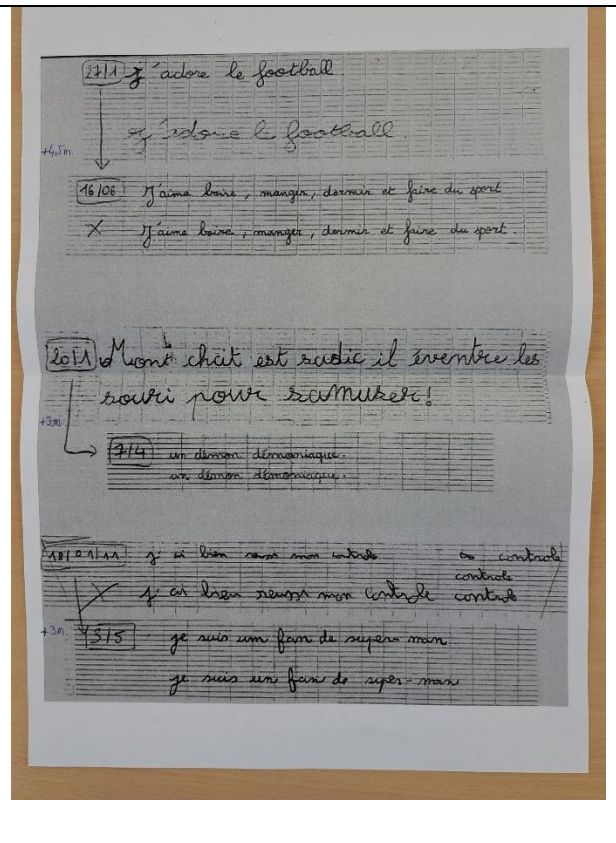 27/1 J'adore le football.
J'adore le football.
+4,5m.
16/06 J'aime boire, manger, dormir et faire du sport
X J'aime boire, manger, dormir et faire du sport.
20/1 Mont chat est sadic il éventre les
souri pour samuser!
+3m.
7/4 un démon démoniaque.
un démon démoniaque.
10/01/11 j'ai bien reussi mon controle controle
controle
j'ai bien reussi mon controle controle
+3m.
3/5 je suis um fan de super man
je suis un fan de super-man